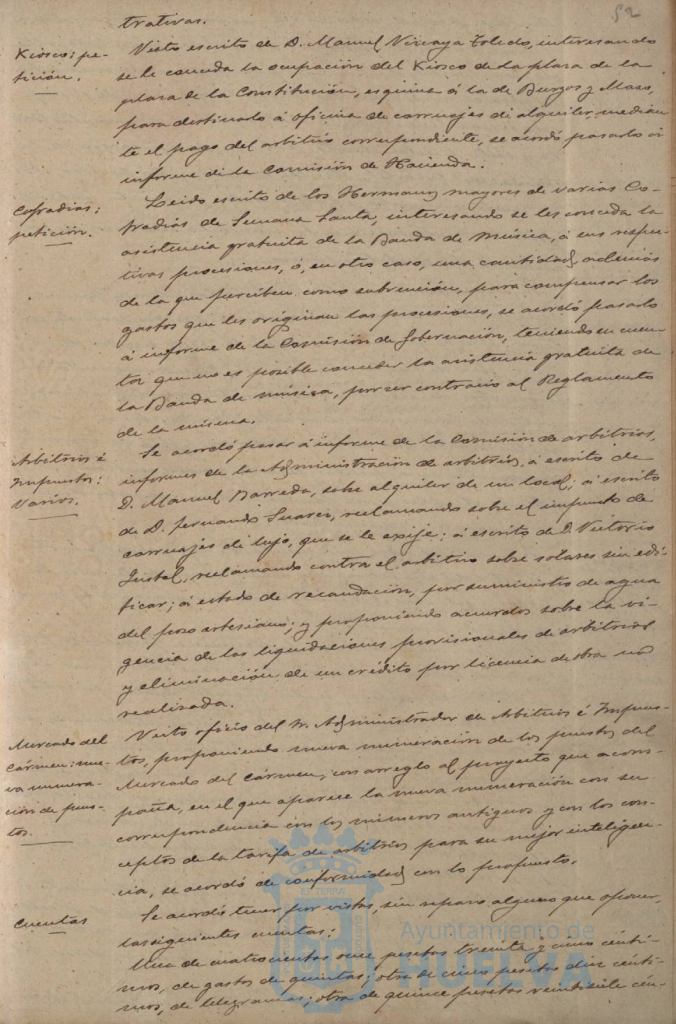 52
trativas.
Kiosco; pe-
tición.
Visto escrito de D. Manuel Vizcaya Toledo, interesando
se le conceda la ocupación del Kiosco de la plaza de la
plaza de la Constitución, esquina á la de Burgos y Mazo,
para destinarlo á oficina de carruajes de alquiler, median
te el pago del arbitrio correspondiente, se acordó pasarlo á
informe de la Comisión de Hacienda.
Cofradias;
petición.
Leido escrito de los Hermanos mayores de varias Co-
fradias de Semana Santa, interesando se les conceda la
asistencia gratuita de la Banda de Música, á sus respec-
tivas procesiones, ó, en otro caso, una cantidad, además
de la que perciben como subvención, para compensar los
gastos que les originan las procesiones, se acordó pasarlo
á informe de la Comisión de Gobernación, teniendo en cuen-
ta que no es posible conceder la asistencia gratuita de
la Banda de música, por ser contrario al Reglamento
de la misma.
Arbitrios é
Impuestos:
Varios.
Se acordó pasar á informe de la Comisión de arbitrios,
informes de la Administración de arbitrios, á escrito de
D. Manuel Barreda, sobre alquiler de un local; á escrito
de D. Fernando Suarez, reclamando sobre el impuesto de
carruajes de lujo, que se le exije; á escrito de D. Victorio
reclamando contra el arbitrio sobre solares sin edi-
ficar; á estado de recaudación, por suministro de agua
del pozo artesiano; y proponiendo acuerdos sobre la vi-
gencia de las liquidaciones provisionales de arbitrios
y eliminación de un crédito por licencia de obra no
realizada.
Mercado del
Cármen: nue-
va numera-
ción de pues-
tos.
Visto oficio del Sr. Administrador de Arbitrios é Impues-
tos, proponiendo nueva numeración de los puestos del
Mercado del Cármen, con arreglo al proyecto que acom-
paña, en el que aparece la nueva numeración con su
correspondencia con los números antiguos y con los con-
ceptos de la tarifa de arbitrios para su mejor inteligen-
cia, se acordó de conformidad con lo propuesto.
Cuentas
Se acordó tener por vistas, sin reparo alguno que oponer,
las siguientes cuentas:
Una de cuatrocientas once pesetas treinta y cinco cénti-
mos, de gastos de quintas; otra de cinco pesetas diez cénti-
mos, de telegramas; otra de quince pesetas veintisiete cén-
Ayuntamiento de
HUELVA